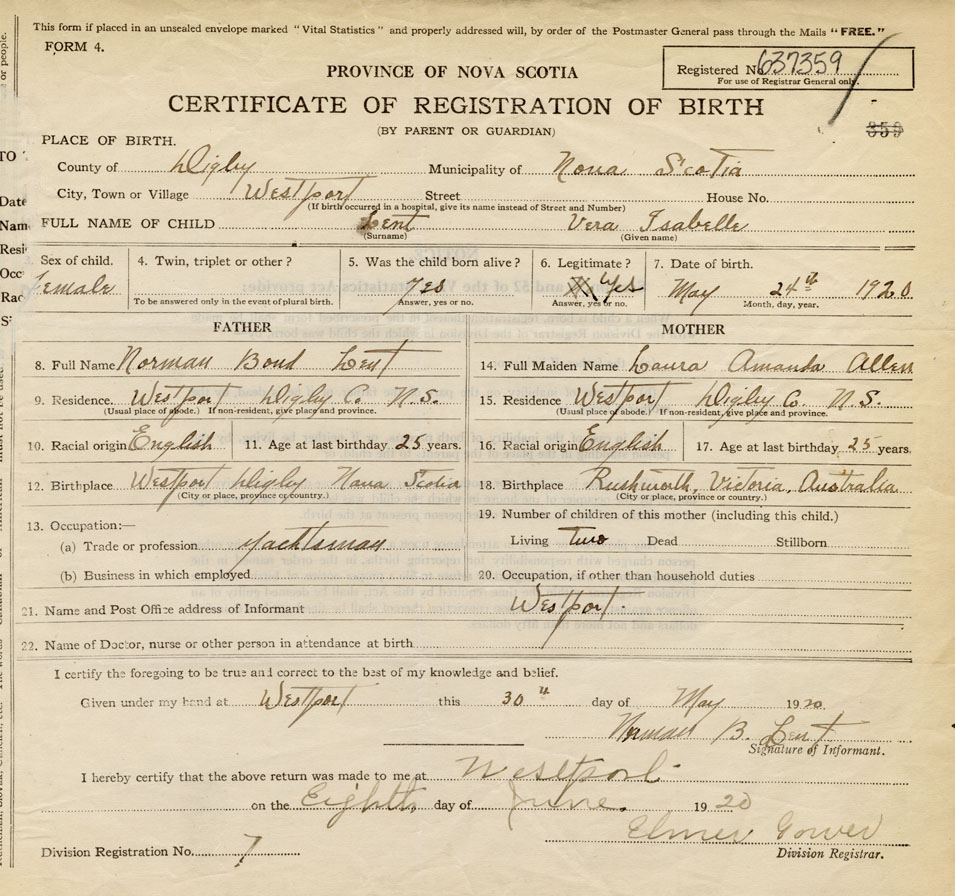 This form if placed in an unsealed envelope marked "Vital Statistics" and properly addressed will, by order of the Postmaster General pass through the Mails "FREE."
FORM 4.
Registered No. 637359
For use of Registrar General only.
PROVINCE OF NOVA SCOTIA
CERTIFICATE OF REGISTRATION OF BIRTH
(BY PARENT OR GUARDIAN)
359
PLACE OF BIRTH.
County of Digby Municipality of Nova Scotia
City, Town or Village Westport Street House No.
(If birth occurred in a hospital, give its name instead of Street and Number)
FULL NAME OF CHILD Lent Vera Isabelle
(Surname) (Given name)
Sex of child. 4. Twin, triplet or other? 5. Was the child born alive? 6. Legitimate? 7. Date of birth.
Female Yes Yes May 24th 1920
To be answered only in the event of plural birth. Answer, yes or no. Answer, yes or no. Month, day, year.
FATHER MOTHER
8. Full Name Norman Bond Lent 14. Full Maiden Name Laura Amanda Allen
9. Residence. Westport Digby Co. N.S. 15. Residence Westport Digby Co. N.S.
(Usual place of abode.) If non-resident, give place and province. (Usual place of abode.) If non-resident, give place and province.
10. Racial origin English 11. Age at last birthday 25 years. 16. Racial origin English 17. Age at last birthday 25 years.
12. Birthplace Westport Digby Nova Scotia 18. Birthplace Rushworth, Victoria, Australia
(City or place, province or country.) (City or place, province or country.)
13. Occupation:— 19. Number of children of this mother (including this child.)
(a) Trade or profession Yachtsman Living two Dead Stillborn
(b) Business in which employed 20. Occupation, if other than household duties
21. Name and Post Office address of Informant Westport.
22. Name of Doctor, nurse or other person in attendance at birth
I certify the foregoing to be true and correct to the best of my knowledge and belief.
Given under my hand at Westport this 30th day of May 1920.
Norman B. Lent
Signature of Informant.
I hereby certify that the above return was made to me at Westport
on the Eighth day of June. 1920
Elmer Gower
Division Registration No. 7 Division Registrar.